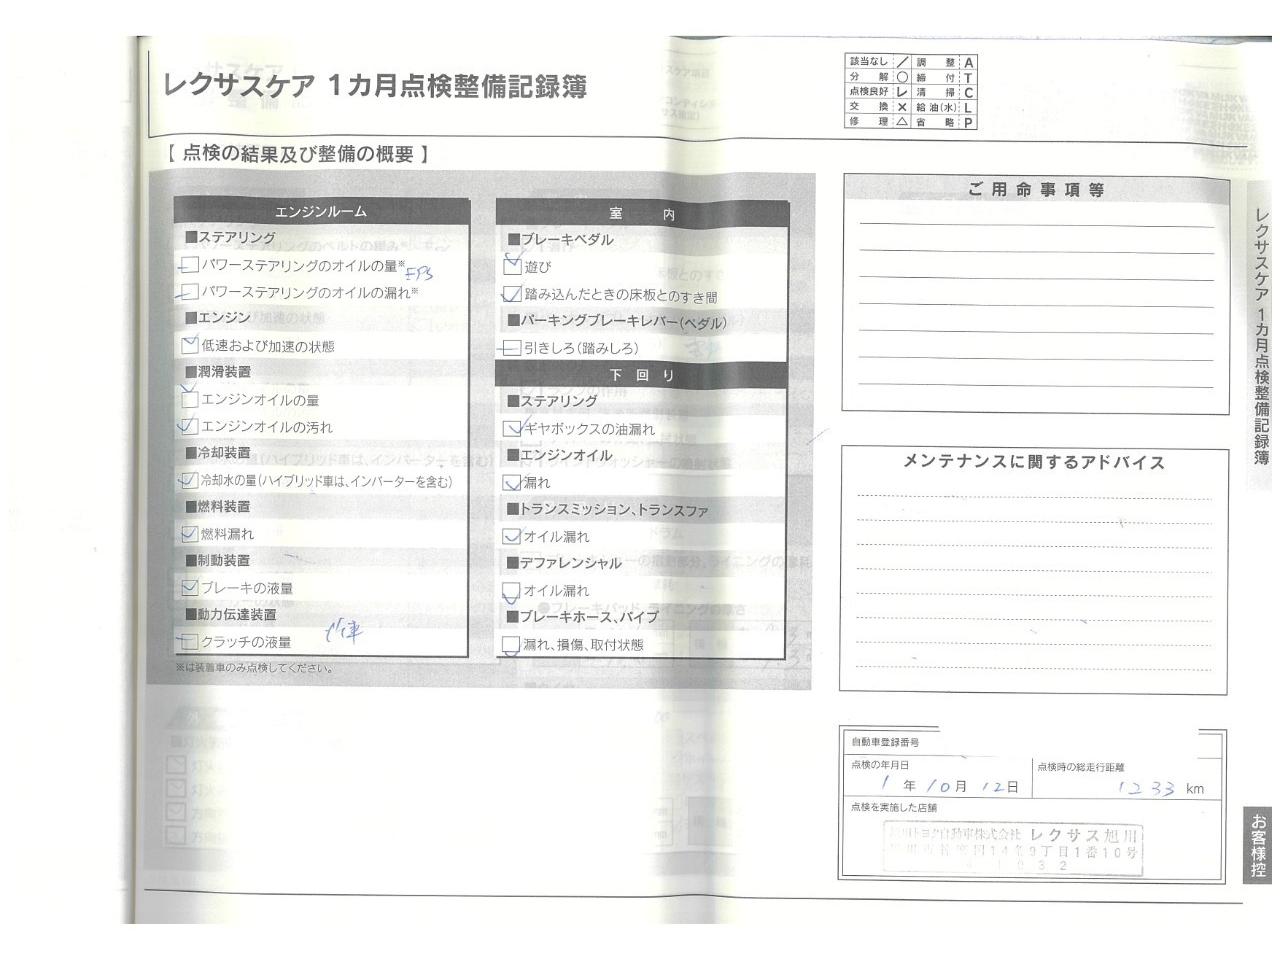 レクサスケア 1カ月点検整備記録簿
該当なし ／ 調整 A
分解 ○ 締付 T
点検良好 レ 清掃 C
交換 × 給油(水) L
修理 △ 省略 P
【 点検の結果及び整備の概要 】
エンジンルーム
■ステアリング
パワーステアリングのオイルの量※
EPS
パワーステアリングのオイルの漏れ※
■エンジン
低速および加速の状態
■潤滑装置
エンジンオイルの量
エンジンオイルの汚れ
■冷却装置
冷却水の量(ハイブリッド車は、インバーターを含む)
■燃料装置
燃料漏れ
■制動装置
ブレーキの液量
■動力伝達装置
クラッチの液量
※は装着車のみ点検してください。
室内
■ブレーキペダル
遊び
踏み込んだときの床板とのすき間
■パーキングブレーキレバー(ペダル)
引きしろ(踏みしろ)
下回り
■ステアリング
ギヤボックスの油漏れ
■エンジンオイル
漏れ
■トランスミッション、トランスファ
オイル漏れ
■デファレンシャル
オイル漏れ
■ブレーキホース、パイプ
漏れ、損傷、取付状態
ご用命事項等
メンテナンスに関するアドバイス
自動車登録番号
点検の年月日
1年10月12日
点検時の総走行距離
1233 km
点検を実施した店舗
トヨタ自動車株式会社 レクサス旭川
14条9丁目1番10号
レクサスケア 1カ月点検整備記録簿
お客様控